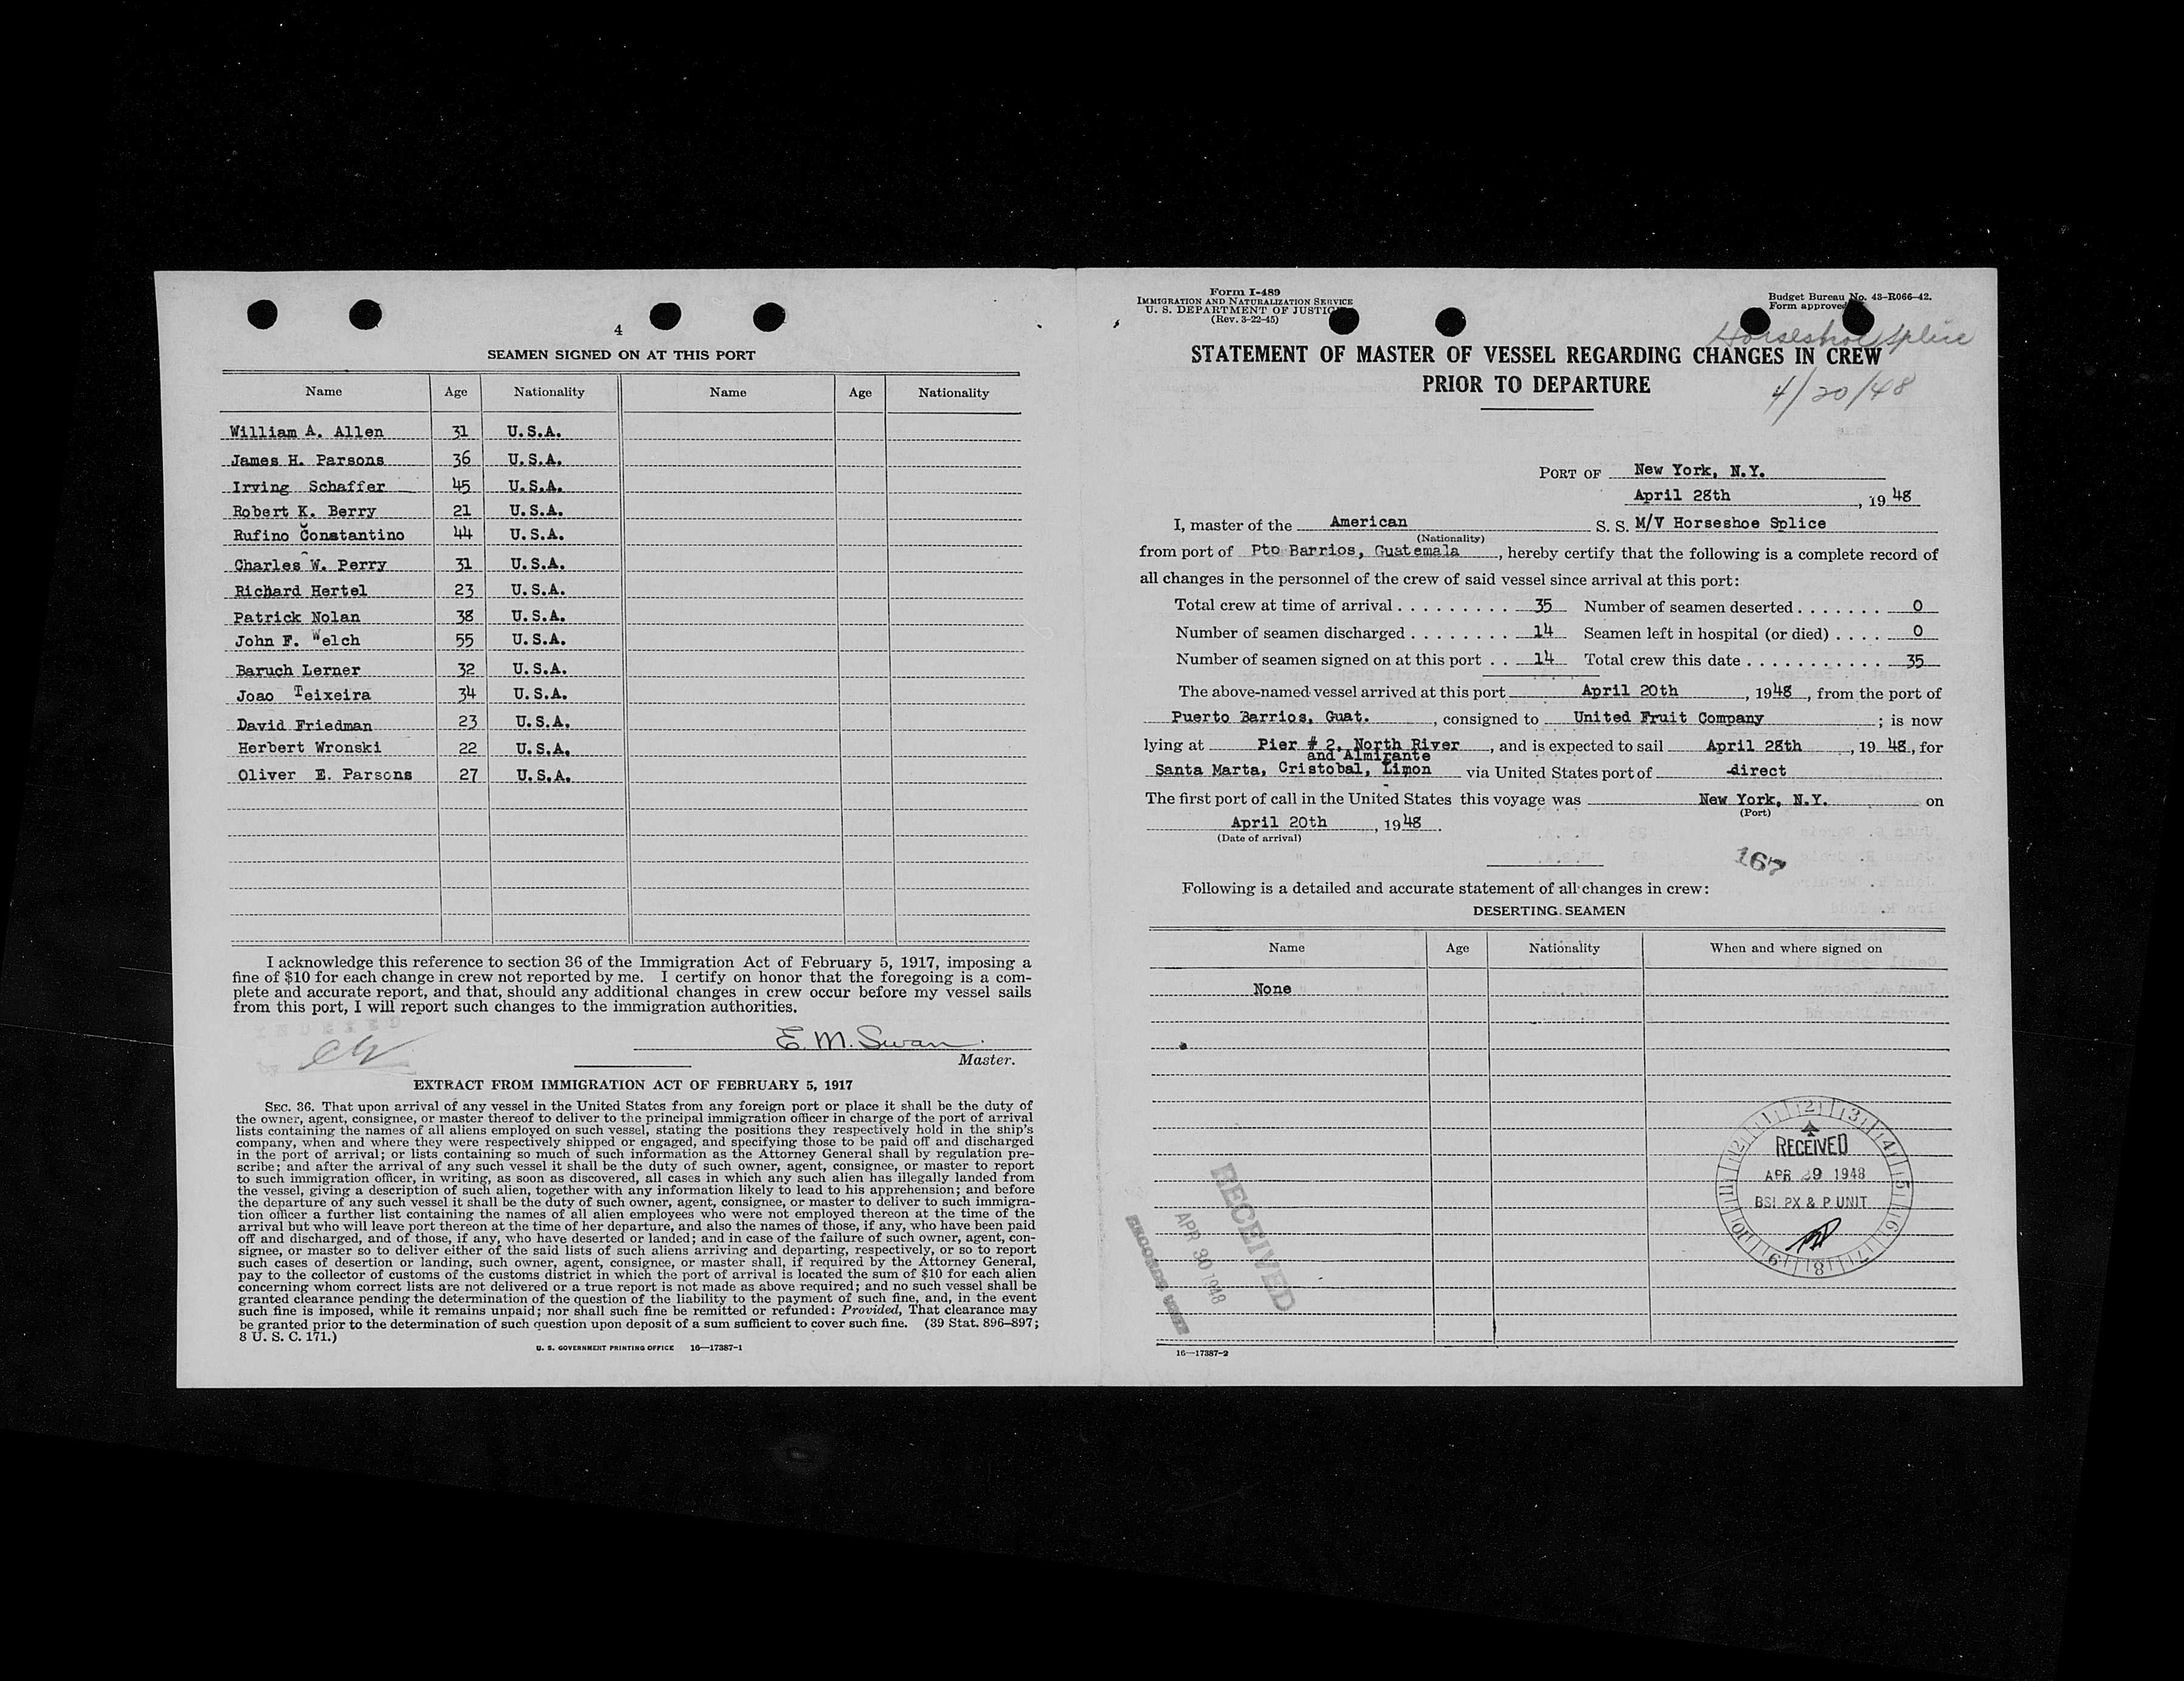 4
SEAMEN SIGNED ON AT THIS PORT
Name Age Nationality Name Age Nationality
William A. Allen 31 U.S.A.
James H. Parsons 36 U.S.A.
Irving Schaffer 45 U.S.A.
Robert K. Berry 21 U.S.A.
Rufino Constantino 44 U.S.A.
Charles W. Perry 31 U.S.A.
Richard Hertel 23 U.S.A.
Patrick Nolan 38 U.S.A.
John F. Welch 55 U.S.A.
Baruch Lerner 32 U.S.A.
Joao Teixeira 34 U.S.A.
David Friedman 23 U.S.A.
Herbert Wronski 22 U.S.A.
Oliver E. Parsons 27 U.S.A.
I acknowledge this reference to section 36 of the Immigration Act of February 5, 1917, imposing a
fine of $10 for each change in crew not reported by me. I certify on honor that the foregoing is a com-
plete and accurate report, and that, should any additional changes in crew occur before my vessel sails
from this port, I will report such changes to the immigration authorities.
E. M. Swan
by
Master.
EXTRACT FROM IMMIGRATION ACT OF FEBRUARY 5, 1917
SEC. 36. That upon arrival of any vessel in the United States from any foreign port or place it shall be the duty of
the owner, agent, consignee, or master thereof to deliver to the principal immigration officer in charge of the port of arrival
lists containing the names of all aliens employed on such vessel, stating the positions they respectively hold in the ship's
company, when and where they were respectively shipped or engaged, and specifying those to be paid off and discharged
in the port of arrival; or lists containing so much of such information as the Attorney General shall by regulation pre-
scribe; and after the arrival of any such vessel it shall be the duty of such owner, agent, consignee, or master to report
to such immigration officer, in writing, as soon as discovered, all cases in which any such alien has illegally landed from
the vessel, giving a description of such alien, together with any information likely to lead to his apprehension; and before
the departure of any such vessel it shall be the duty of such owner, agent, consignee, or master to deliver to such immigra-
tion officer a further list containing the names of all alien employees who were not employed thereon at the time of the
arrival but who will leave port thereon at the time of her departure, and also the names of those, if any, who have been paid
off and discharged, and of those, if any, who have deserted or landed; and in case of the failure of such owner, agent, con-
signee, or master so to deliver either of the said lists of such aliens arriving and departing, respectively, or so to report
such cases of desertion or landing, such owner, agent, consignee, or master shall, if required by the Attorney General,
pay to the collector of customs of the customs district in which the port of arrival is located the sum of $10 for each alien
concerning whom correct lists are not delivered or a true report is not made as above required; and no such vessel shall be
granted clearance pending the determination of the question of the liability to the payment of such fine, and, in the event
such fine is imposed, while it remains unpaid; nor shall such fine be remitted or refunded: Provided, That clearance may
be granted prior to the determination of such question upon deposit of a sum sufficient to cover such fine. (39 Stat. 896–897;
8 U. S. C. 171.)
U. S. GOVERNMENT PRINTING OFFICE 16—17387-1
Form I-489
IMMIGRATION AND NATURALIZATION SERVICE
U. S. DEPARTMENT OF JUSTICE
(Rev. 3-22-45)
Budget Bureau No. 43-R066-42.
Form approved
Horseshoe Splice
STATEMENT OF MASTER OF VESSEL REGARDING CHANGES IN CREW
PRIOR TO DEPARTURE
4/20/48
PORT OF New York, N.Y.
April 28th, 1948
I, master of the American S. S. M/V Horseshoe Splice
(Nationality)
from port of Pto Barrios, Guatemala, hereby certify that the following is a complete record of
all changes in the personnel of the crew of said vessel since arrival at this port:
Total crew at time of arrival . . . . . . . . . 35 Number of seamen deserted . . . . . . . 0
Number of seamen discharged . . . . . . . . 14 Seamen left in hospital (or died) . . . . 0
Number of seamen signed on at this port . . 14 Total crew this date . . . . . . . . . . . 35
The above-named vessel arrived at this port April 20th, 1948, from the port of
Puerto Barrios, Guat., consigned to United Fruit Company; is now
lying at Pier # 2, North River, and is expected to sail April 28th, 1948, for
and Almirante
Santa Marta, Cristobal, Limon via United States port of direct
The first port of call in the United States this voyage was New York, N.Y. on
(Port)
April 20th, 1948.
(Date of arrival)
167
Following is a detailed and accurate statement of all changes in crew:
DESERTING SEAMEN
Name Age Nationality When and where signed on
None
RECEIVED
APR 29 1948
BSI PX & P UNIT
1 2 3 4 5 6 7 8 9 10 11 12
RECEIVED
APR 30 1948
RECORDS UNIT
16—17387-2